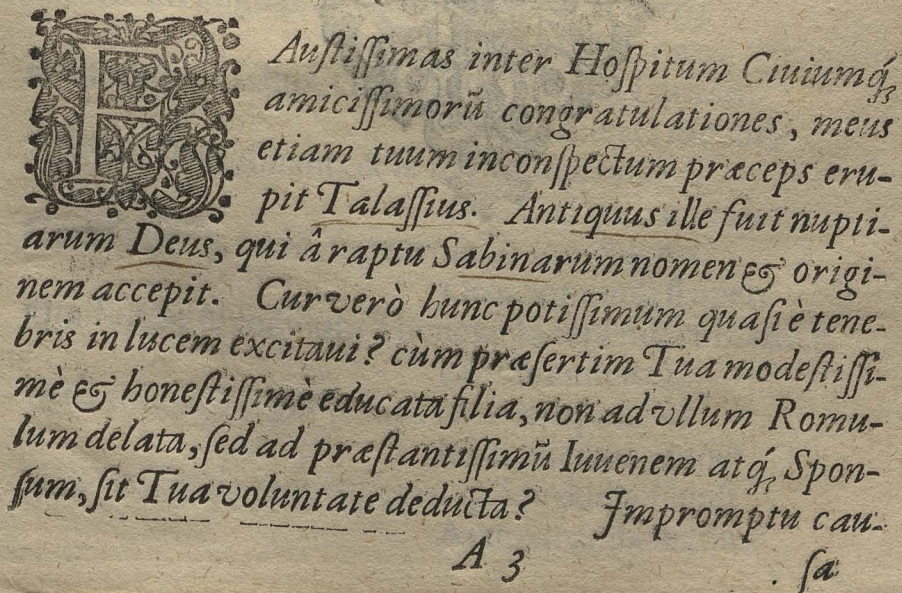 FAuſtiſſimas inter Hoſpitum Ciuiumq́;
amiciſſimorũ congratulationes, meus
etiam tuum inconſpectum præceps eru-
pit Talaſſius. Antiquus ille fuit nupti-
arum Deus, qui â raptu Sabinarum nomen & origi-
nem accepit. Cur verò hunc potiſſimum quaſi è tene-
bris in lucem excitaui? cùm præſertim Tua modeſtiſſi-
mè & honeſtiſſimè educata filia, non ad vllum Romu-
lum delata, ſed ad præſtantiſſimũ Iuuenem atq́; Spon-
ſum, ſit Tua voluntate deducta? Impromptu cau-
A 3
ſa